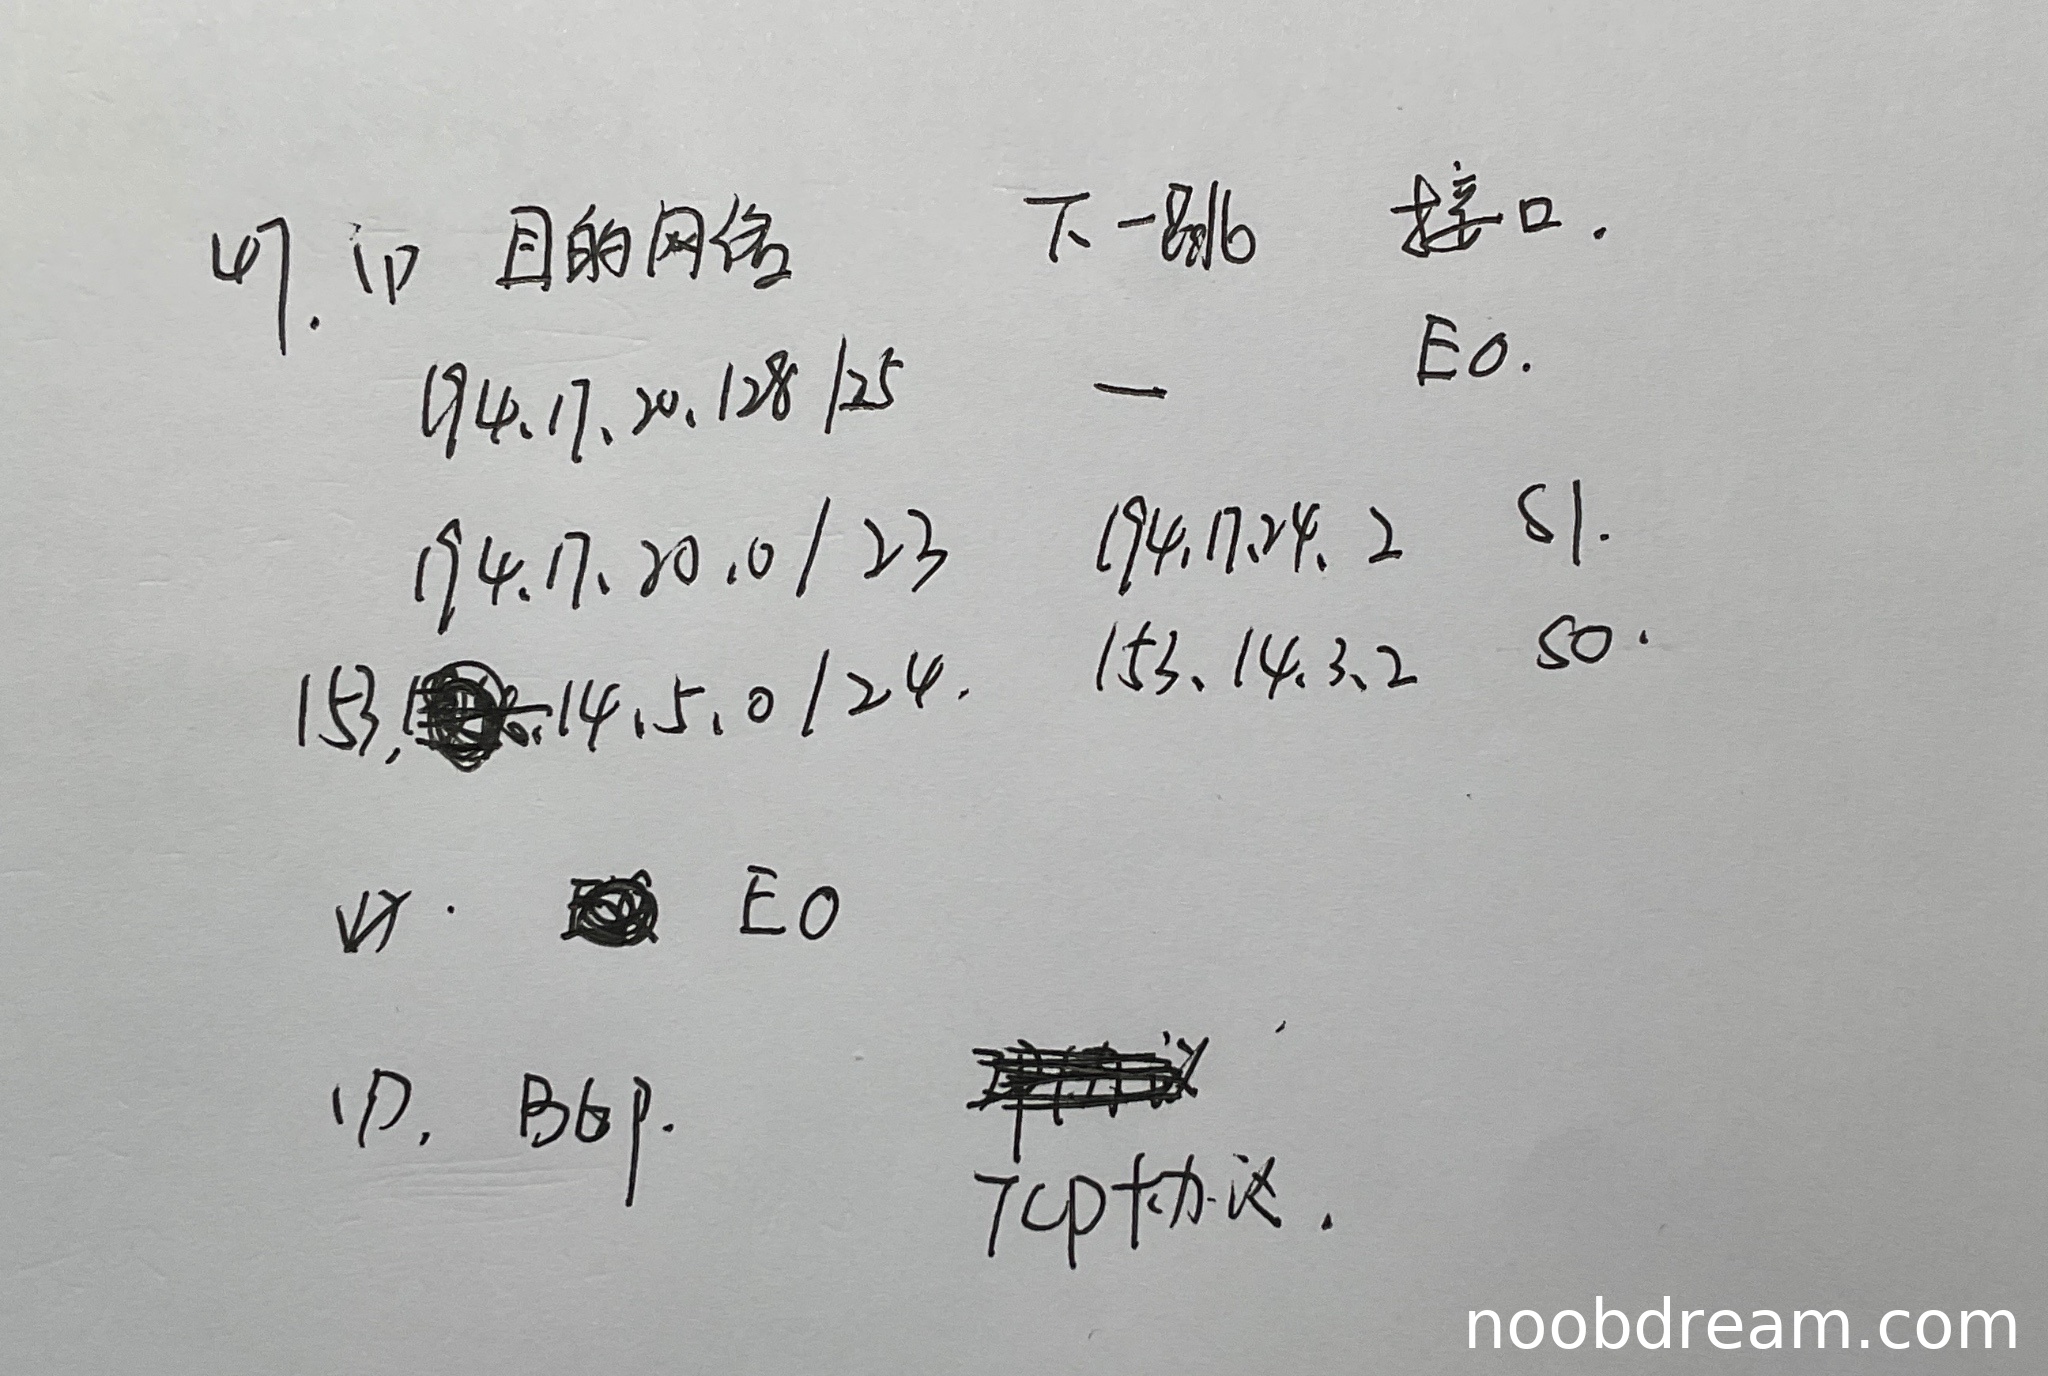 47. (1) 目的网络 下一跳 接口.
194.17.20.128/25 — E0.
194.17.20.0/23 194.17.24.2 S1.
153.14.5.0/24. 153.14.3.2 S0.
E0
BGP.
TCP协议.
noobdream.com